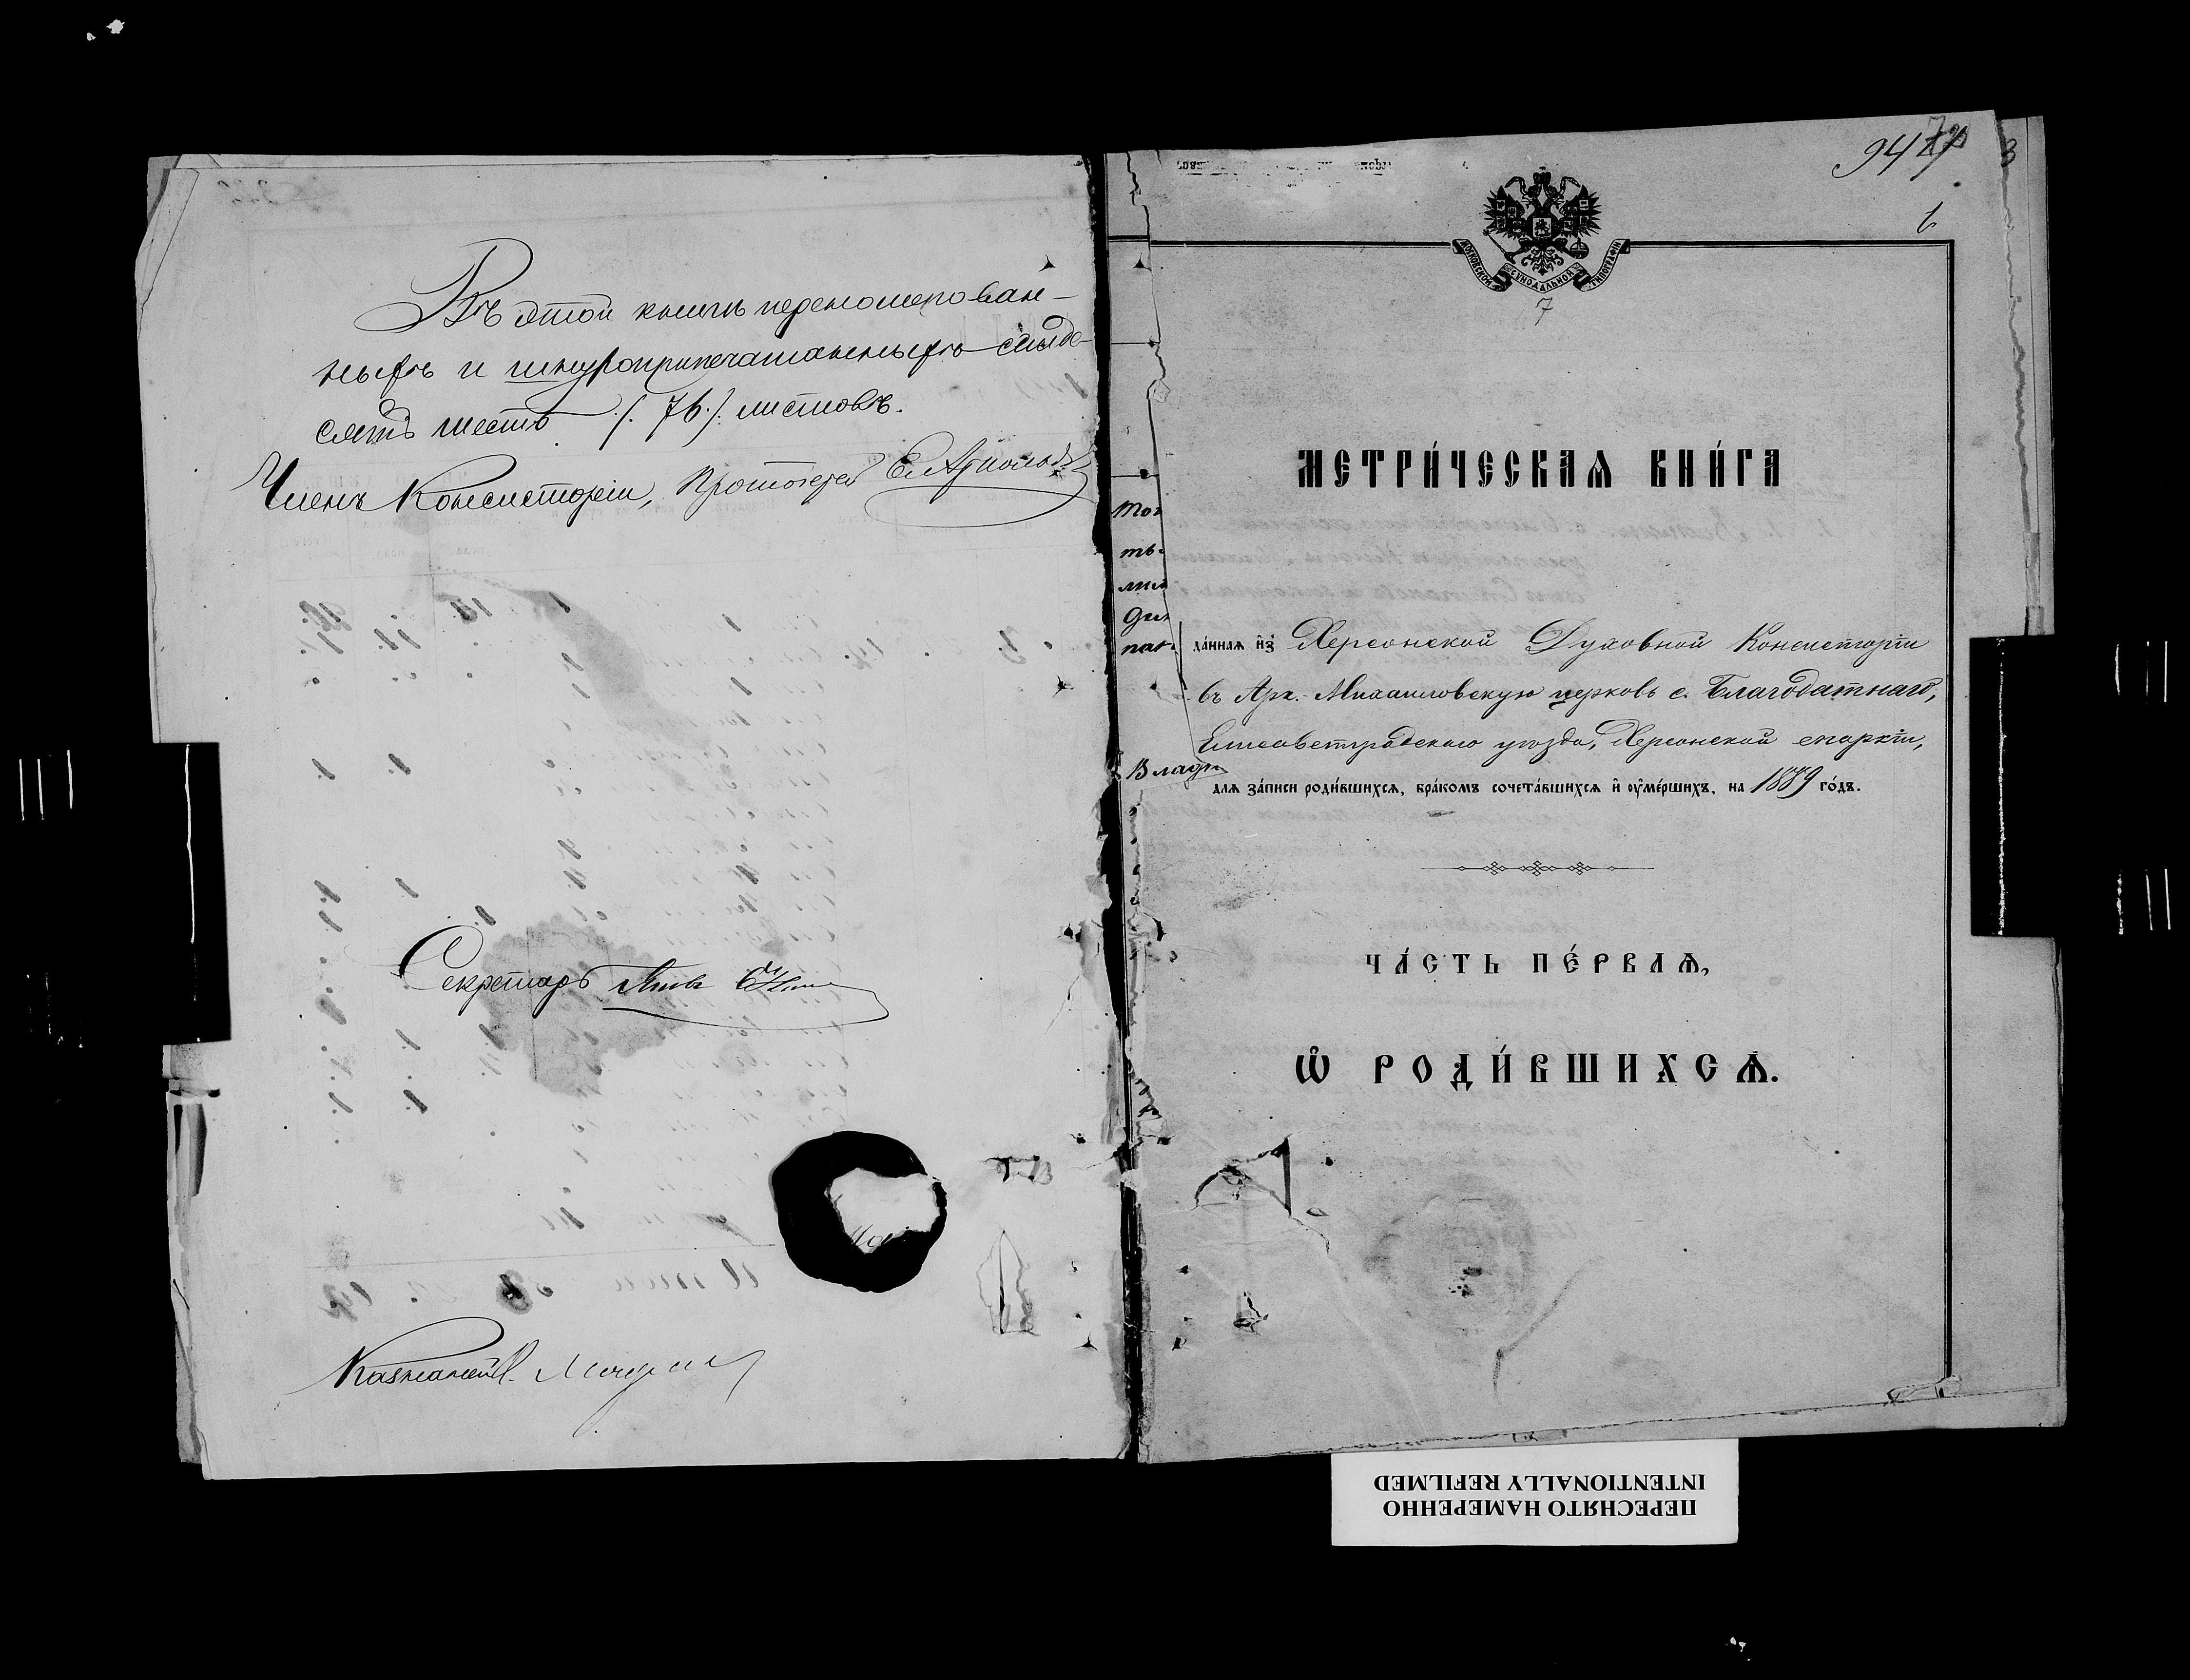 Въ этой книгѣ переномерован-
ныхъ и шнуроприпечатанныхъ семьде-
сятъ шесть /. 76 ./ листовъ.
Членъ Консисторіи, Протоіерей
Секретарь
Казначей
МОСКОВСКОЙ СѴНОДАЛЬНОЙ ТИПОГРАФІИ
7
МЕТРИ́ЧЕСКАѦ КНИ́ГА
да́ннаѧ и҆з̾ Херсонской Духовной Консисторіи
въ Арх.-Михаиловскую церковь с. Благодатнаго,
Елисаветградскаго уѣзда, Херсонской епархіи,
длѧ за́писи роди́вшихсѧ, бра́комъ сочета́вшихсѧ и҆ ᲂу҆ме́ршихъ, на 1889 го́дъ.
ЧА́СТЬ ПЕ́РВАѦ,
Ѡ҆ РОДИ́ВШИХСѦ.
ПЕРЕСНЯТО НАМЕРЕННО
INTENTIONALLY REFILMED